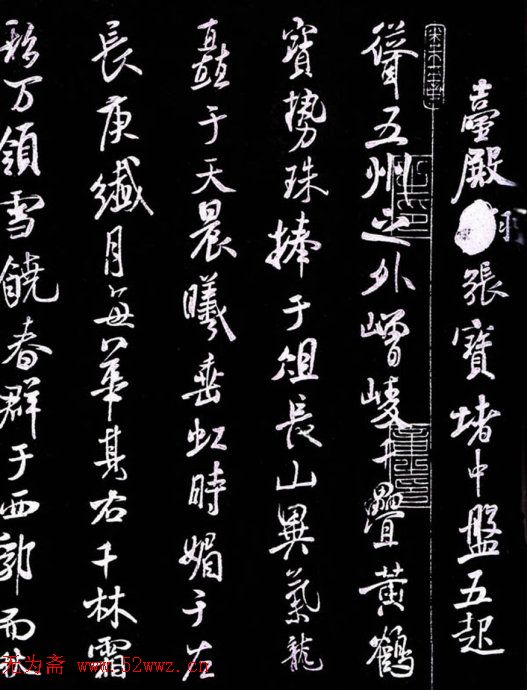 臺殿 張寶堵中盤五起
聳五州之外嶒崚 疊黃鶴
寶勢珠捧于俎長山異氣龍
矗于天晨曦垂虹時媚于左
長庚纖月每華其右千林霜
万領雪饒春群于西郭而
无为斋 www.52wwz.cn